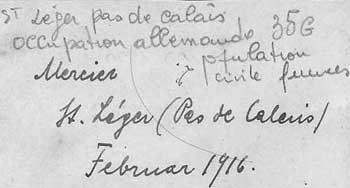 ST Léger pas de calais
occupation allemande 35G
Mercier population
civile femmes
St. Léger (Pas de Calais)
Februar 1916.